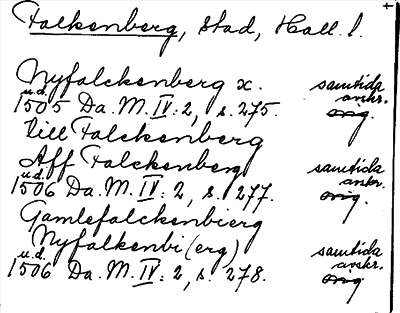 Falkenberg, stad, Hall. l.
Nyfalckenberg x. samtida
u.d. avskr.
1505 Da. M. IV: 2, s. 275. orig.
Till Falckenberg
Aff Falckenberg samtida
u.d. avskr.
1506 Da. M. IV: 2, s. 277. orig.
Gamlefalckenbierg
Nyfalkenbi(erg) samtida
u.d. avskr.
1506 Da. M. IV: 2, s. 278. orig